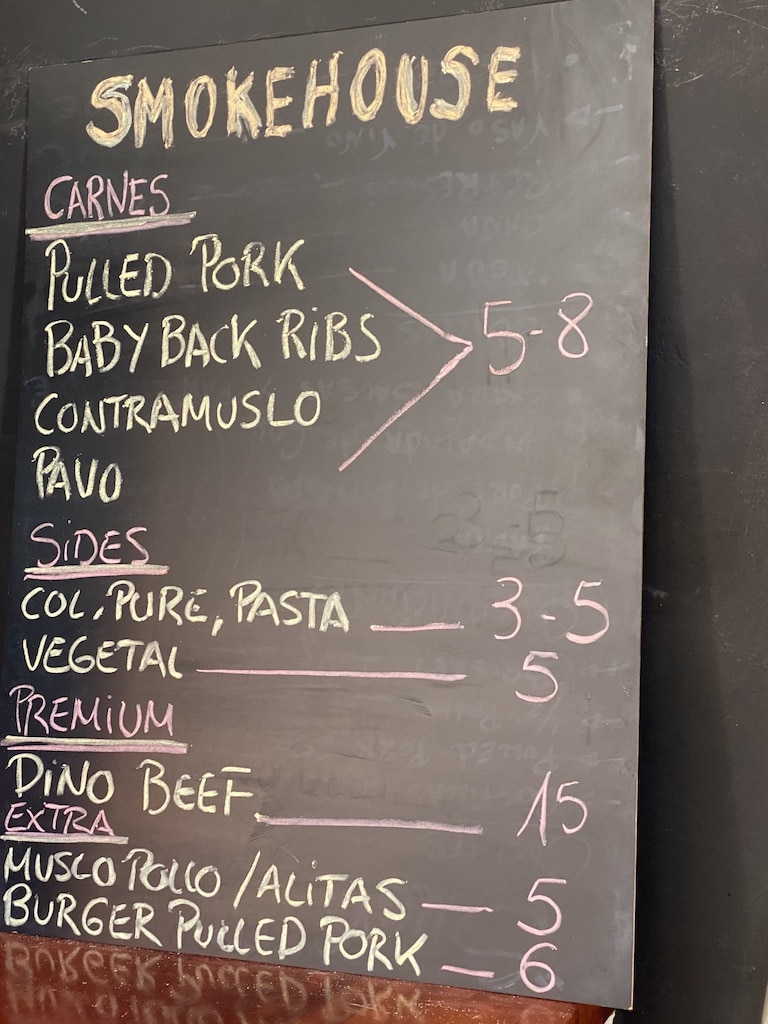 SMOKEHOUSE
CARNES
PULLED PORK
BABY BACK RiBS
CONTRAMUSLO
PAVO
5-8
SiDES
COL, PURE, PASTA __ 3-5
VEGETAL ____ 5
PREMiUM
DiNO BEEF ____ 15
EXTRA
MUSLO POLLO / ALiTAS — 5
BURGER PULLED PORK — 6